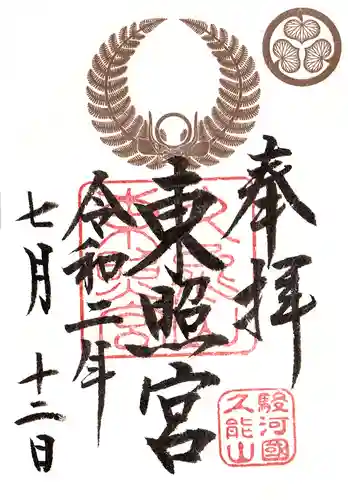 奉拝
東照宮
令和二年
七月十二日
駿河國
久能山